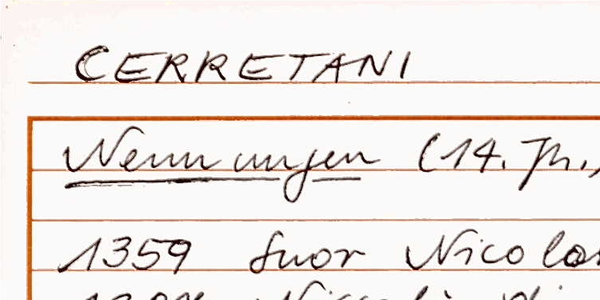 CERRETANI
Nennungen (14. Jh.)
1359 Suor